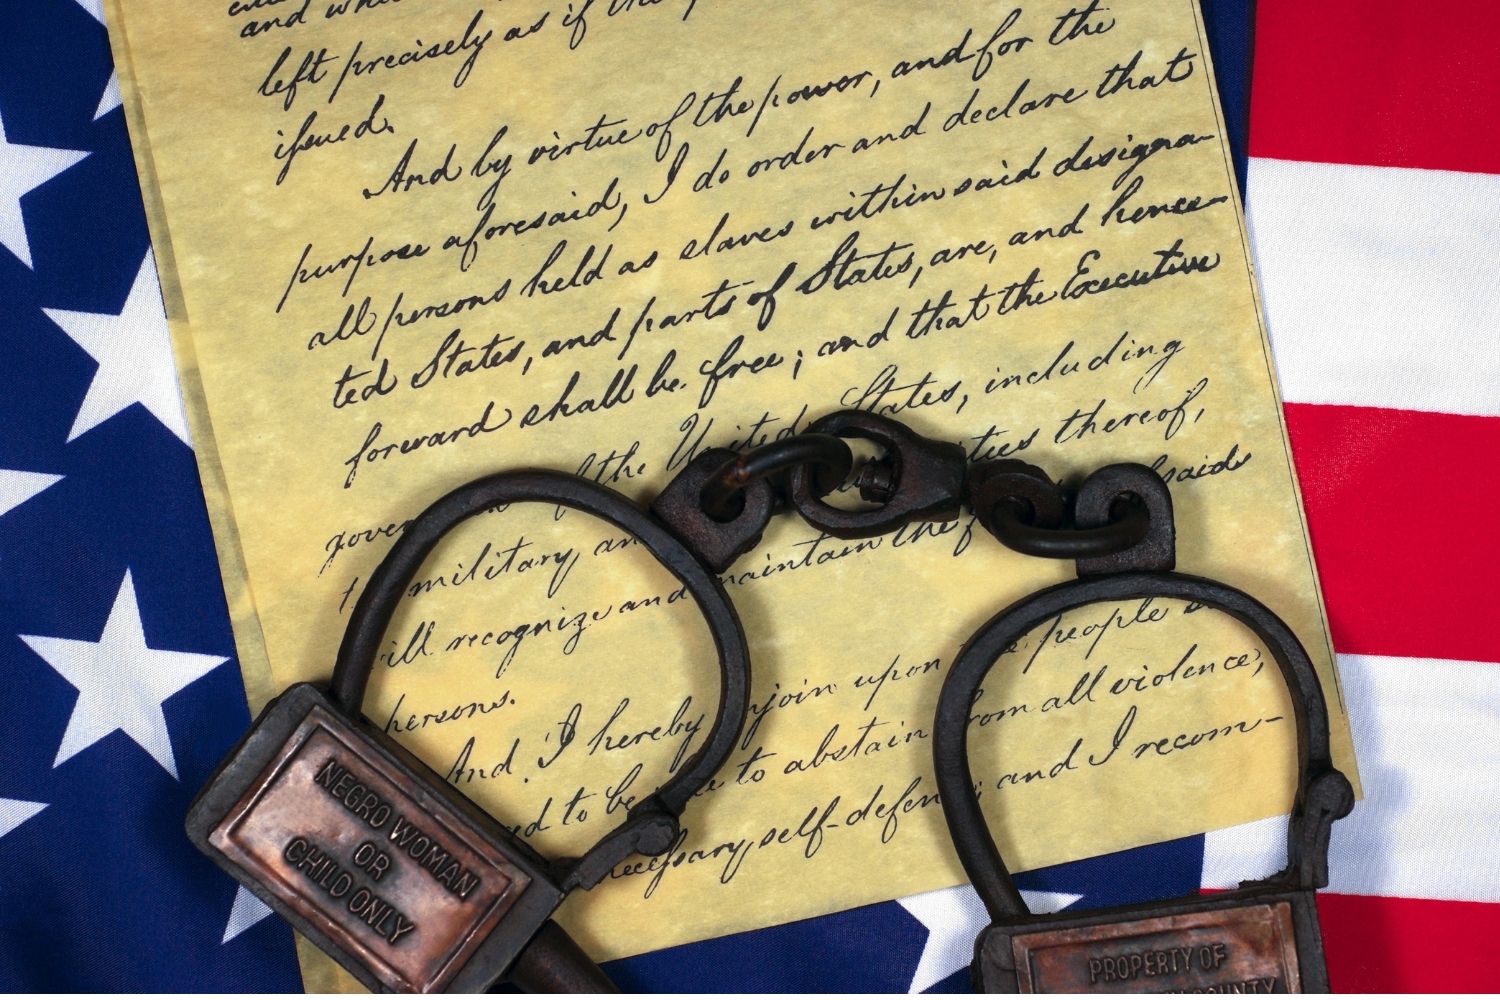 and
left precisely as if the
issued.
And by virtue of the power, and for the
purpose aforesaid, I do order and declare that
all persons held as slaves within said designa-
ted States, and parts of States, are, and hence-
forward shall be free; and that the Executive
of the United States, including
military thereof,
said
ill recognize and maintain the
persons.
And I hereby join upon people
to be to abstain from all violence,
necessary self-defen ; and I recom-
NEGRO WOMAN
OR
CHILD ONLY
PROPERTY OF
COUNTY